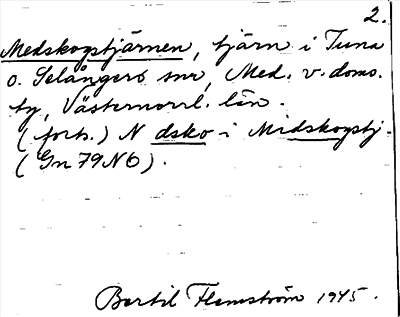 2.
Medskogstjärnen, tjärn i Tuna
o. Selångers snr, Med. v. doms.
ty, Västernorrl. län.
(forts.) N dsko i Midskogstj.
(Gn 79 N 6).
Bertil Flemström 1945.